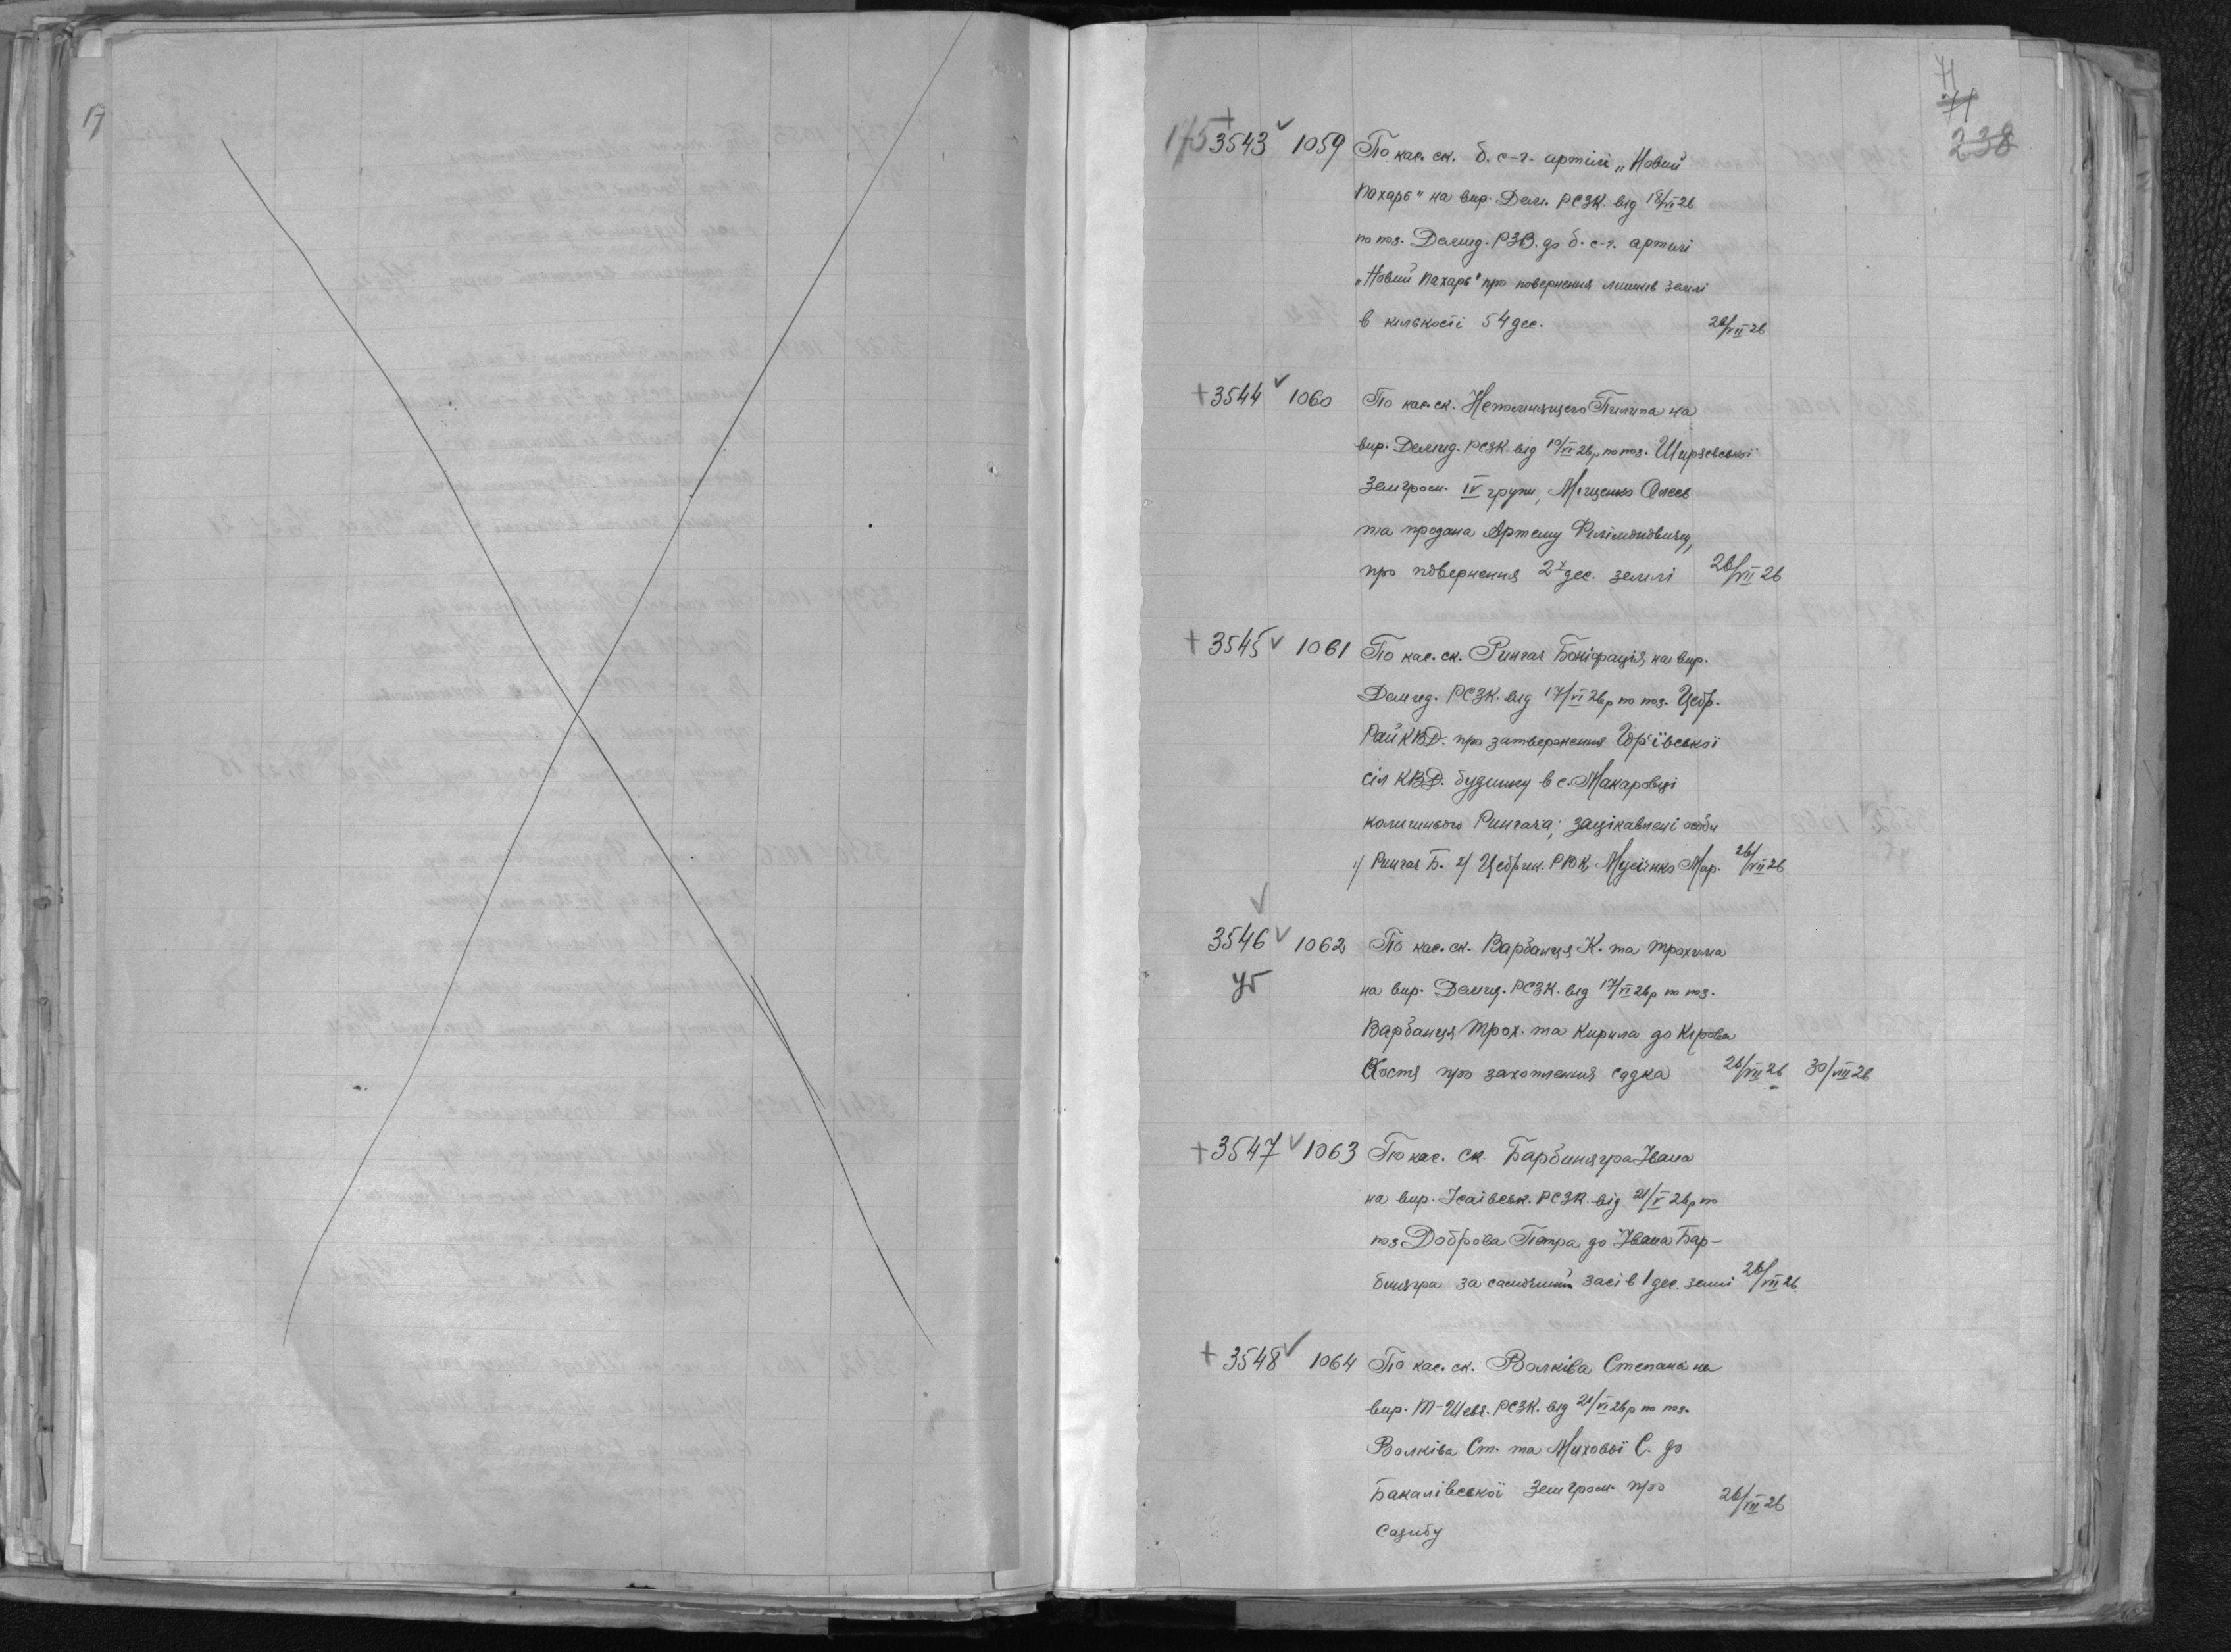 71
71
238
175 + 3543 ✓ 1059 По кас. ск. б. с-г. артілі „Новий
пахарь" на вир. Дем. РСЗК. від 18/VI 26
по поз. Демид. РЗВ. до б. с-г. артілі
„Новий пахарь" про повернення лишків землі
в кількості 54 дес. 26/VII 26
+ 3544 ✓ 1060 По кас. ск. Непомнящего Пилипа на
вир. Демид. РСЗК від 19/VI 26 р по поз. Ширяєвської
Земгром. IV групи, Міщенко Олекс
та продана Артему Филімоновичу,
про повернення 2х дес. землі 26/VII 26
+ 3545 ✓ 1061 По кас. ск. Рингач Боніфація на вир.
Демид. РСЗК. від 17/VI 26 р по поз. Цебр.
Рай КВД. про затвердження Юр'ївської
сіл КВД. будинку в с. Макаровці
колишнього Рингача; зацікавлені особи
1/ Рингач Б. 2/ Цебрик. РВК Мусієнко Мар. 26/VII 26
✓
3546 ✓ 1062 По кас. ск. Варбанця К. та Трохима
на вир. Демид. РСЗК. від 17/VI 26 р по поз.
Варбанця Трох. та Кирила до Кірова
Костя про захоплення садка 26/VII 26 30/VIII 26
+ 3547 ✓ 1063 По кас. ск. Барбинягра Івана
на вир. Ісаївськ. РСЗК. від 21/V 26 р по
поз. Доброва Петра до Івана Бар-
бинягра за самочинний засів 1 дес. землі 26/VII 26.
+ 3548 ✓ 1064 По кас. ск. Волківа Степана на
вир. Т-Шевч. РСЗК. від 21/VI 26 р по поз.
Волківа Ст. та Михової С. до
Бакалівської Земгром. про 26/VII 26
садибу